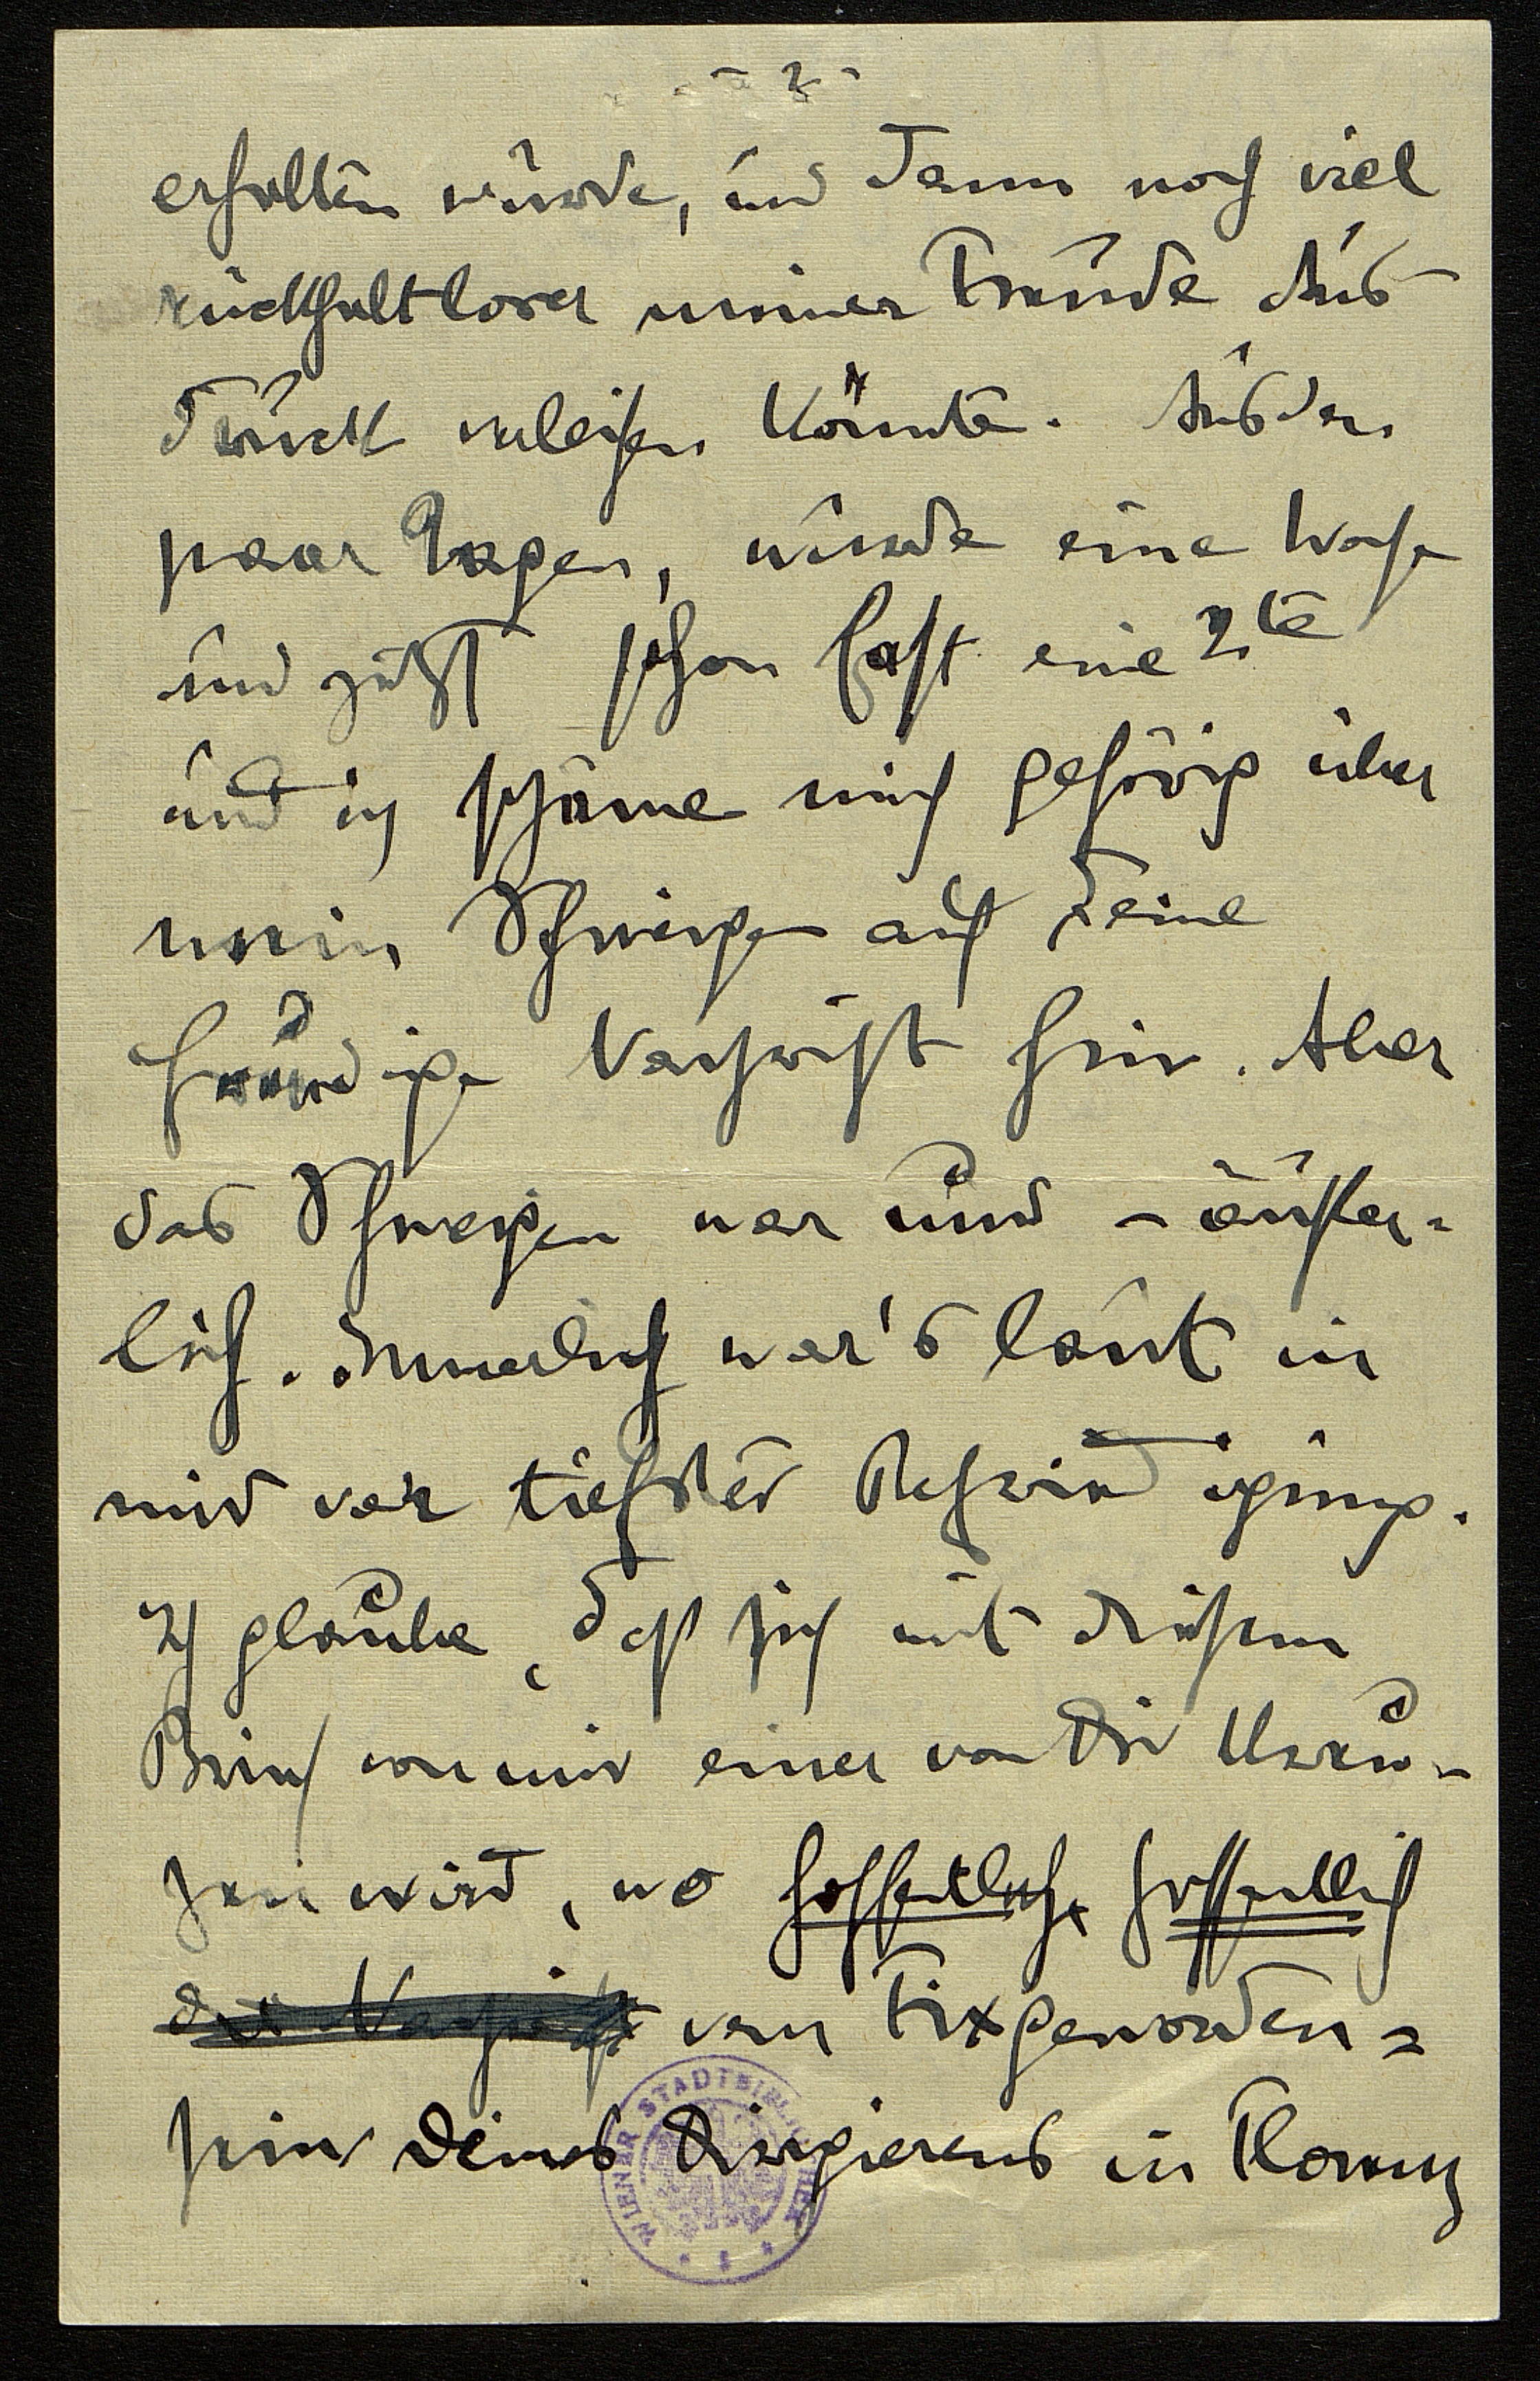 - 2 -
erhalten würde, und dann noch viel
rückhaltloser meiner Freude Aus
druck verleihen könnte. Aus den
paar Tagen, wurde eine Woche
und jetzt schon fast eine 2te
und ich schäme mich gehörig über
mein Schweigen auf Deine
freudige Nachricht hin. Aber
das Schweigen war nur - äußer-
lich. Innerlich war's laut in
mir vor tiefster Befriedigung.
Ich glaube, daß sich mit diesem
Brief von mir einer von Dir
sein wird, wo hoffentlich, hoffentlich
die Nachricht vom Fixgeworden-
sein Deines Dirigierens in Florenz
WIENER STADTBIBLIOTHEK